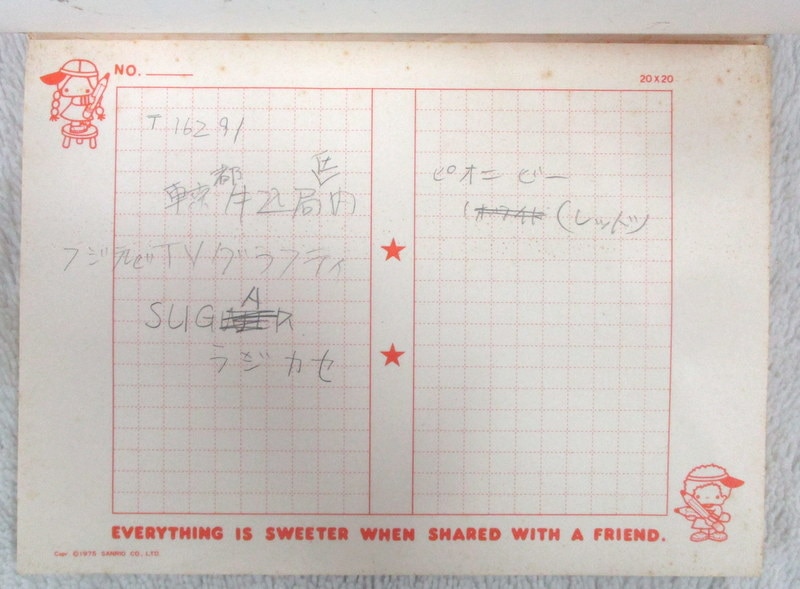 NO.
20×20
〒162 91
東京都牛込局区内
フジテレビTVグラフティ
SUGAR
ラジカセ
ピオニビー
(レッド)
EVERYTHING IS SWEETER WHEN SHARED WITH A FRIEND.
Copr. ©1975 SANRIO CO., LTD.